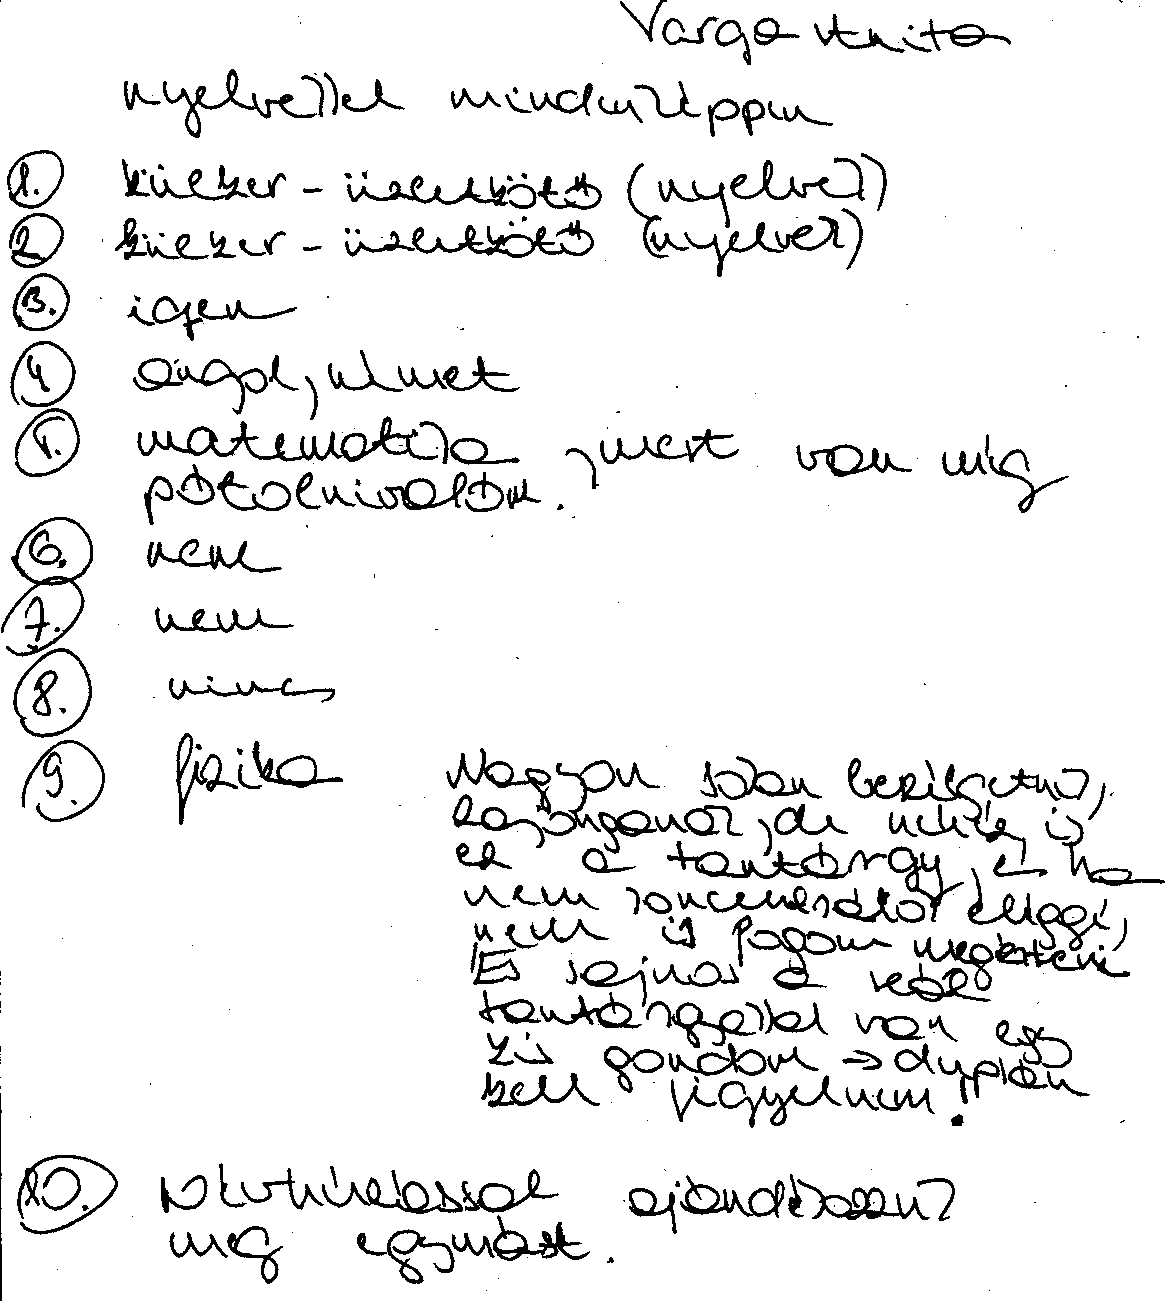 Varga Anita
nyelvekkel mindenképpen
1. külker - üzletkötő (nyelvek)
2. külker - üzletkötő (nyelvek)
3. igen
4. angol, német
5. matematika, mert van még
pótolnivalóm.
6. nem
7. nem
8. nincs
9. fizika
Nagyon sokan beszélgetnek,
hazonganak, de nehéz is
ez a tantárgy, és ha
nem koncentrálok eléggé,
nem is fogom megérteni
És sajnos a reál
tantárgyakkal van egy
kis gondom => duplán
kell figyelnem!
10. ajándékozzuk
meg egymást.